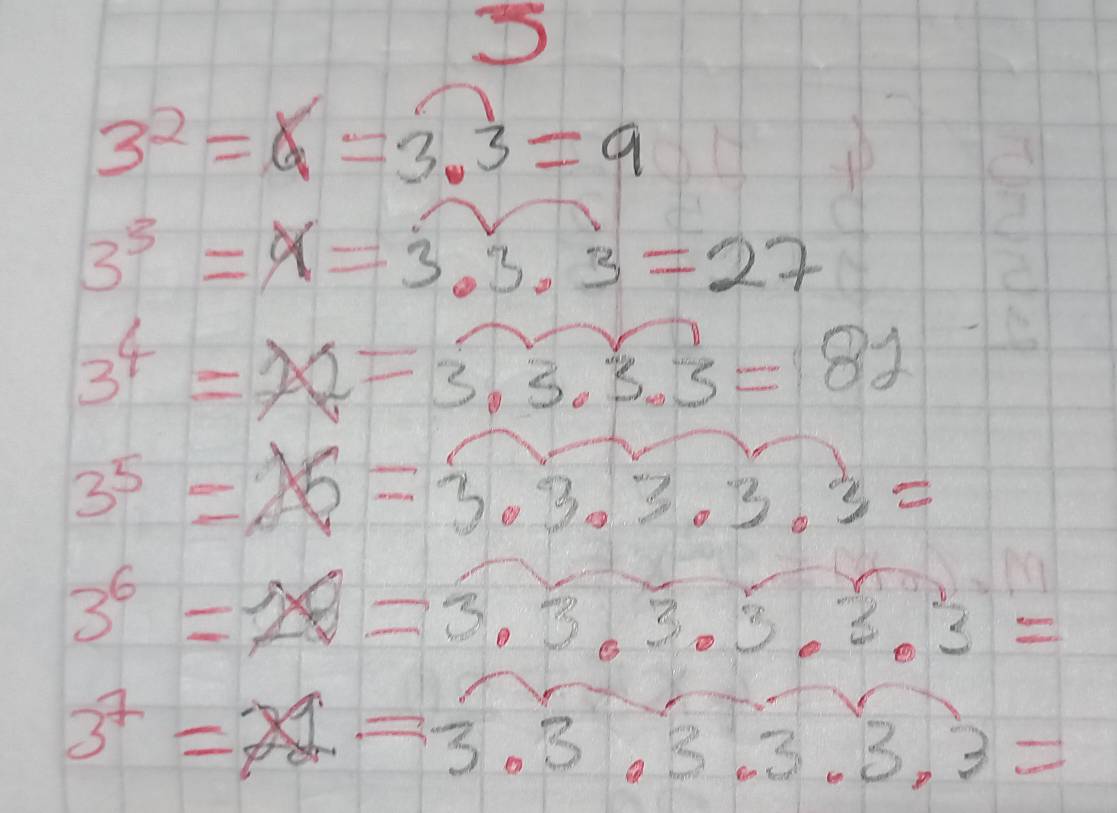 3
3² = 6 = 3.3 = 9
3³ = 9 = 3.3.3 = 27
3⁴ = 12 = 3.3.3.3 = 81
3⁵ = 15 = 3.3.3.3.3 =
3⁶ = 18 = 3.3.3.3.3.3 =
3⁷ = 21 = 3.3.3.3.3.3 =